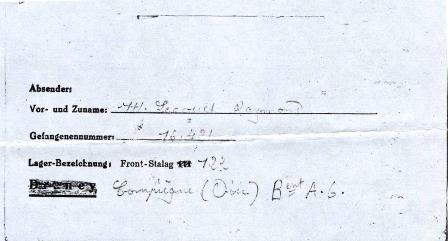 Absender:
Vor- und Zuname: Raymond
Gefangenennummer: 16.421
Lager-Bezeichnung: Front-Stalag 122
Compiègne (Oise) Bent A.6.